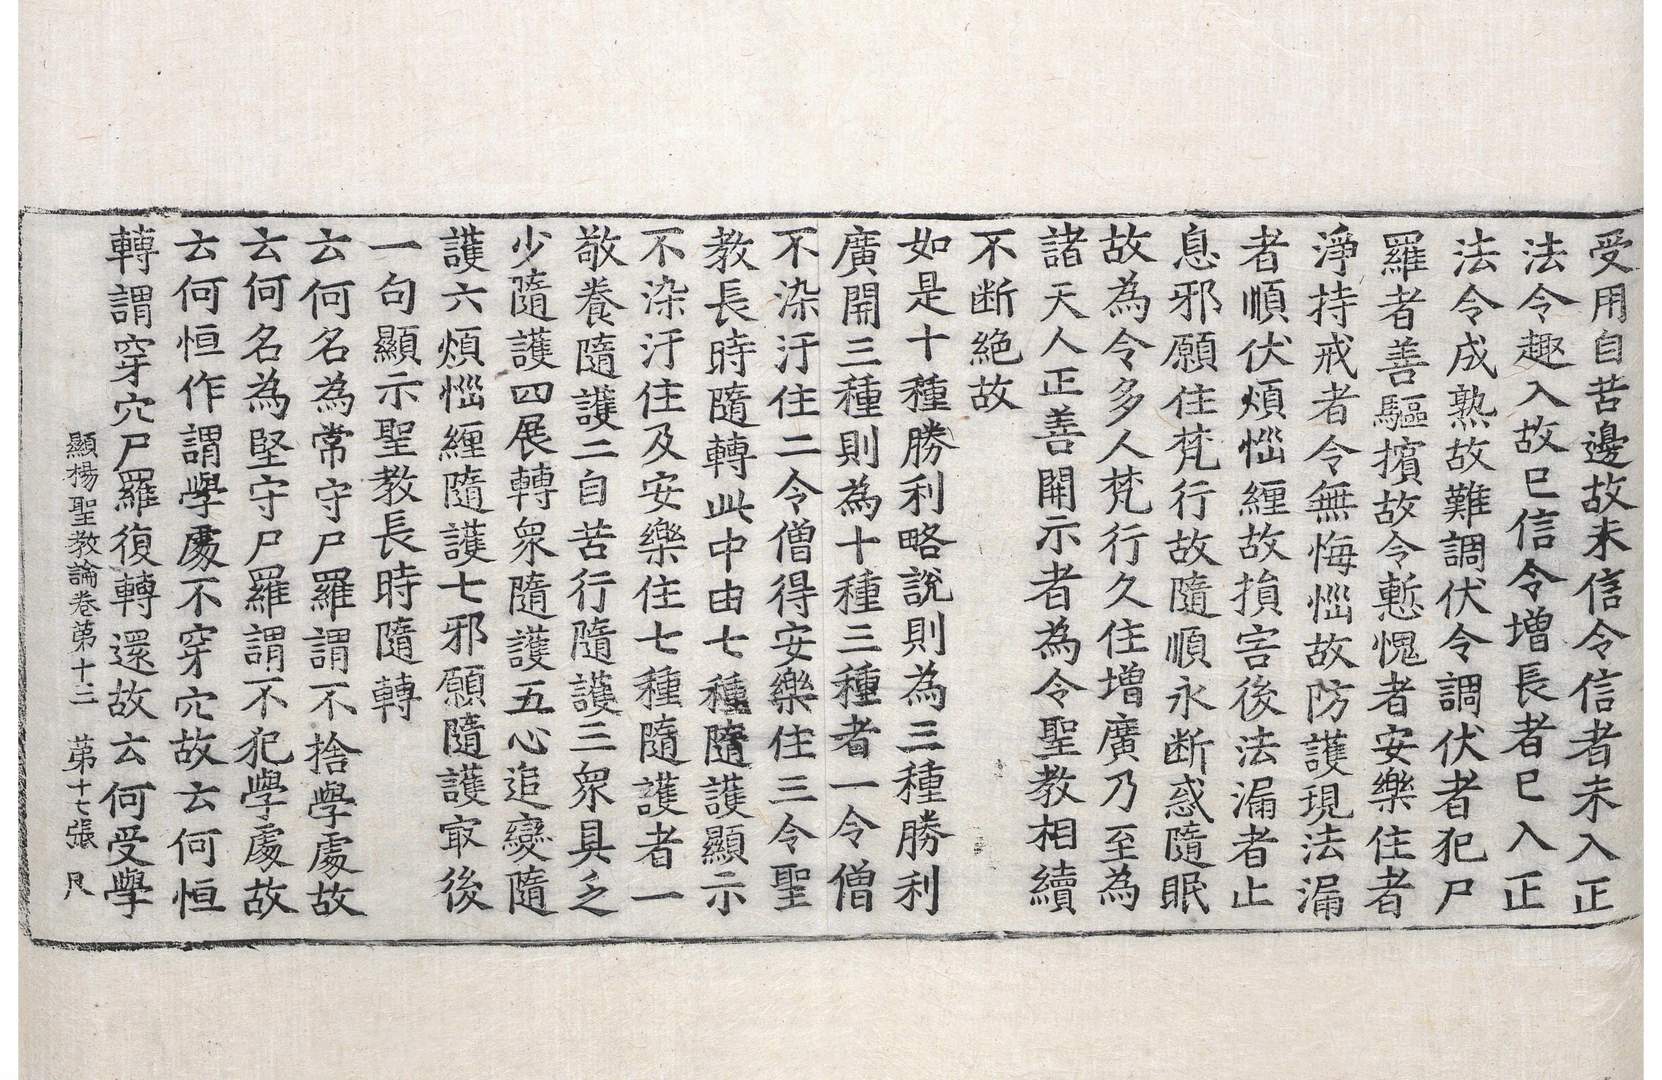 受用自苦邊故未信令信者未入正
法令趣入故已信令增長者已入正
法令成熟故難調伏令調伏者犯尸
羅者善驅擯故令慙愧者安樂住者
淨持戒者令無悔惱故防護現法漏
者順伏煩惱纏故損害後法漏者止
息邪願住梵行故隨順永断惑隨眠
故為令多人梵行久住增廣乃至為
諸天人正善開示者為令聖教相續
不断絶故
如是十種勝利略說則為三種勝利
廣開三種則為十種三種者一令僧
不染汙住二令僧得安樂住三令聖
教長時隨轉此中由七種隨護顯示
不染汙住及安樂住七種隨護者一
敬養隨護二自苦行隨護三衆具乏
少隨護四展轉衆隨護五心追變隨
護六煩惱纏隨護七邪願隨護㝡後
一句顯示聖教長時隨轉
云何名為常守尸羅謂不捨學處故
云何名為堅守尸羅謂不犯學處故
云何恒作謂學處不穿穴故云何恒
轉謂穿穴尸羅復轉還故云何受學
顯揚聖教論卷第十三 第十七張 尺